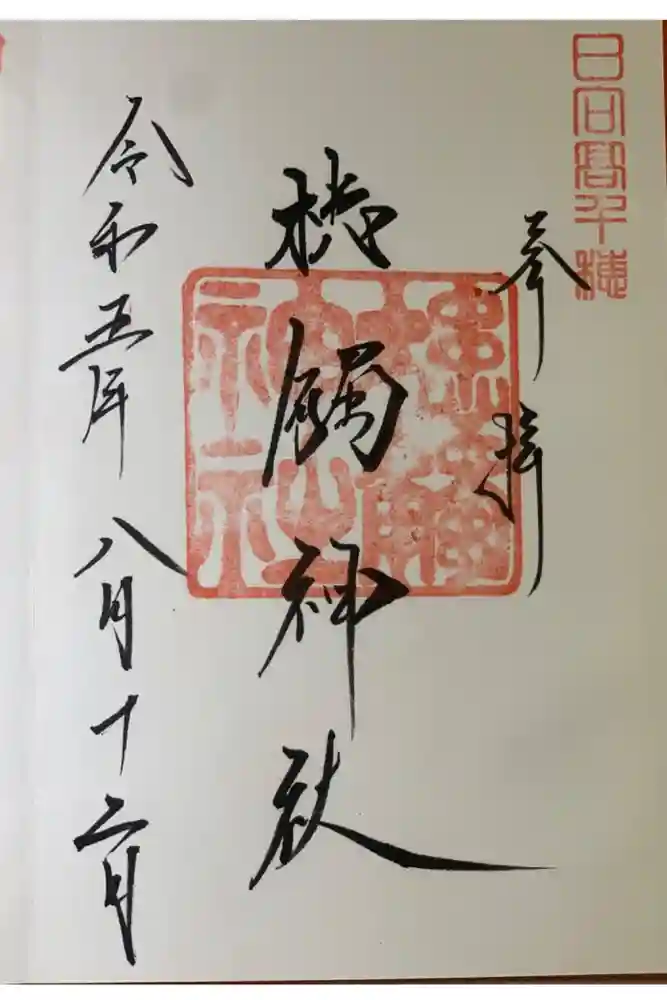 日向髙千穂
奉拝
槵觸神社
槵觸神社
令和五年 八月十二日